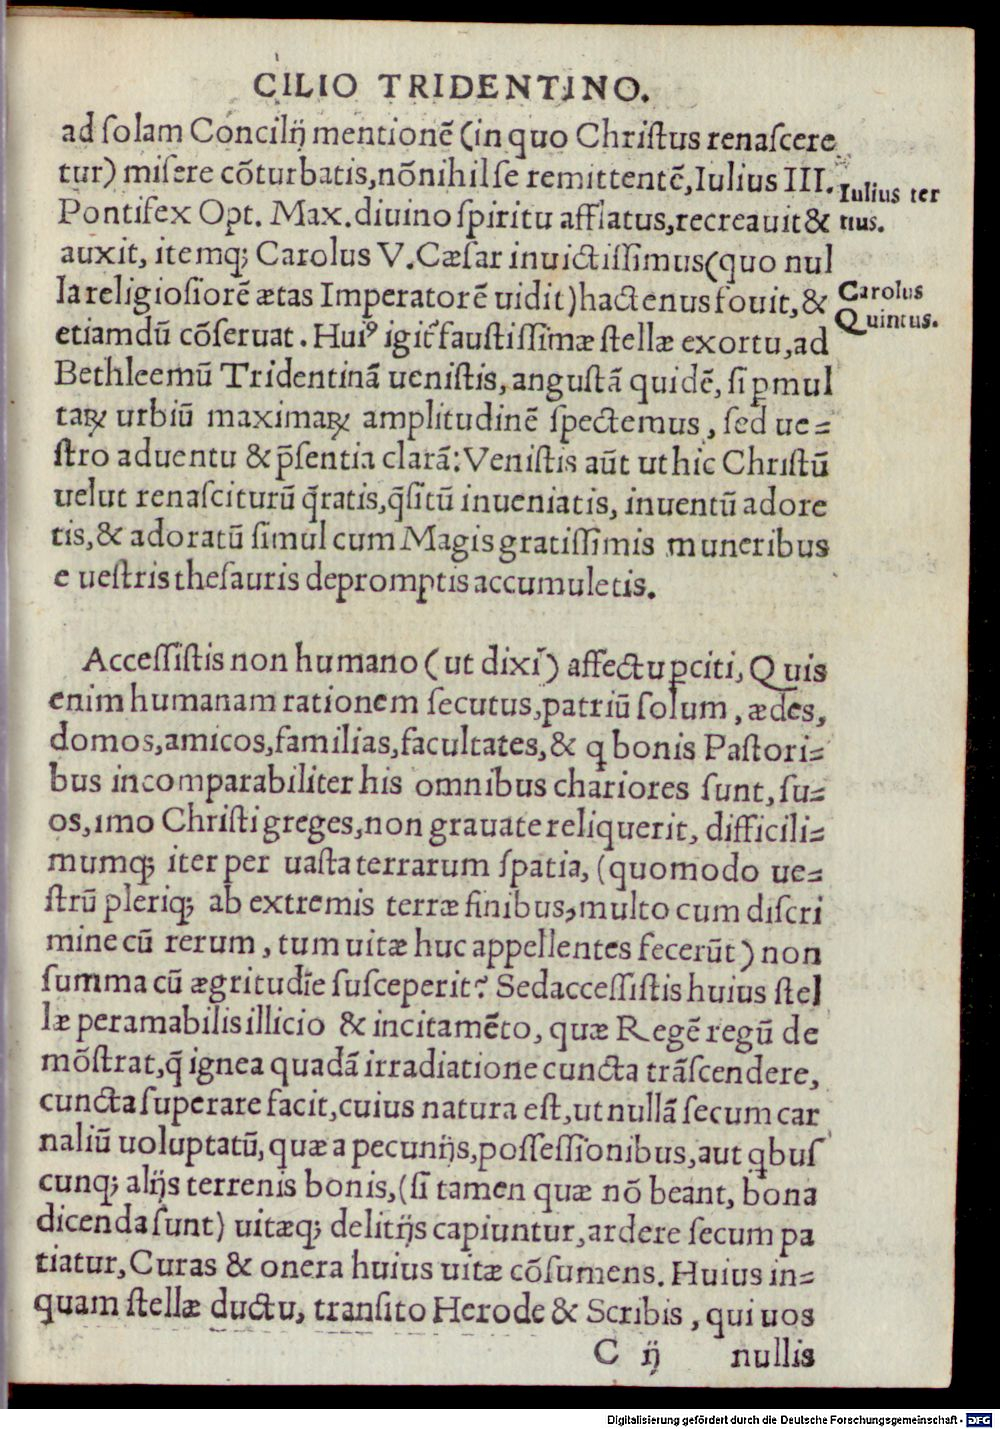 CILIO TRIDENTINO.
ad ſolam Concilij mentionẽ (in quo Chriſtus renaſcere
tur) miſere cõturbatis, nõnihil ſe remittentẽ, Iulius III.
Iulius ter
tius.
Pontifex Opt. Max. diuino ſpiritu afflatus, recreauit &
auxit, itemq; Carolus V. Cæſar inuictiſſimus (quo nul
la religioſiorẽ ætas Imperatorẽ uidit) hactenus fouit, &
Carolus
Quintus.
etiamdũ cõſeruat. Huiꝰ igit᷑ fauſtiſſimæ ſtellæ exortu, ad
Bethleemũ Tridentinã ueniſtis, anguſtã quidẽ, ſi ꝑ mul
taꝝ urbiũ maximaꝝ amplitudinẽ ſpectemus, ſed ue-
ſtro aduentu & p̃ſentia clarã: Veniſtis aũt ut hic Chriſtũ
uelut renaſciturũ q̃ratis, q̃ſitũ inueniatis, inuentũ adore
tis, & adoratũ ſimul cum Magis gratiſſimis muneribus
e ueſtris theſauris depromptis accumuletis.
Acceſſiſtis non humano (ut dixi) affectu ꝑciti, Quis
enim humanam rationem ſecutus, patriũ ſolum, ædes,
domos, amicos, familias, facultates, & q bonis Paſtori-
bus incomparabiliter his omnibus chariores ſunt, ſu-
os, imo Chriſti greges, non grauate reliquerit, difficili-
mumq; iter per uaſta terrarum ſpatia, (quomodo ue-
ſtrũ pleriq; ab extremis terræ finibus, multo cum diſcri
mine cũ rerum, tum uitæ huc appellentes fecerũt) non
ſumma cũ ægritudĩe ſuſceperit? Sed acceſſiſtis huius ſtel
læ peramabilis illicio & incitamẽto, quæ Regẽ regũ de
mõſtrat, q̃ ignea quadã irradiatione cuncta trãſcendere,
cuncta ſuperare facit, cuius natura eſt, ut nullã ſecum car
naliũ uoluptatũ, quæ a pecunijs, poſſeſſionibus, aut qbuſ
cunq; alijs terrenis bonis, (ſi tamen quæ nõ beant, bona
dicenda ſunt) uitæq; delitijs capiuntur, ardere ſecum pa
tiatur, Curas & onera huius uitæ cõſumens. Huius in-
quam ſtellæ ductu, tranſito Herode & Scribis, qui uos
C ij nullis
Digitalisierung gefördert durch die Deutsche Forschungsgemeinschaft - DFG